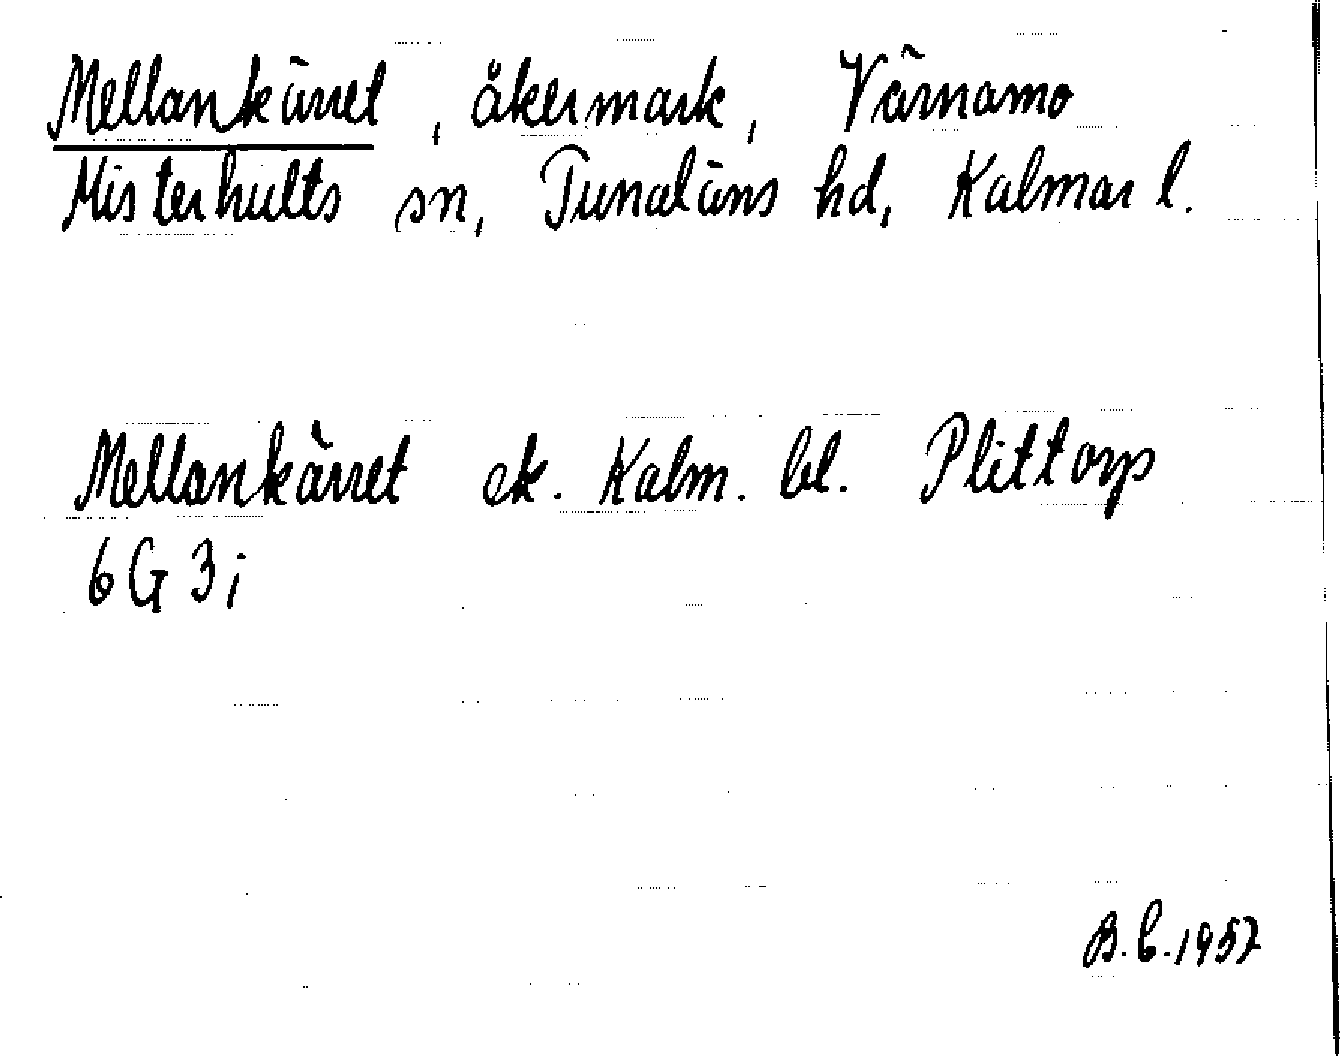 Mellankärret, åkermark, Värnamo
Misterhults sn, Tunaläns hd, Kalmar l.
Mellankärret ek. Kalm. bl. Plittorp
6G 3i
B.b.1957